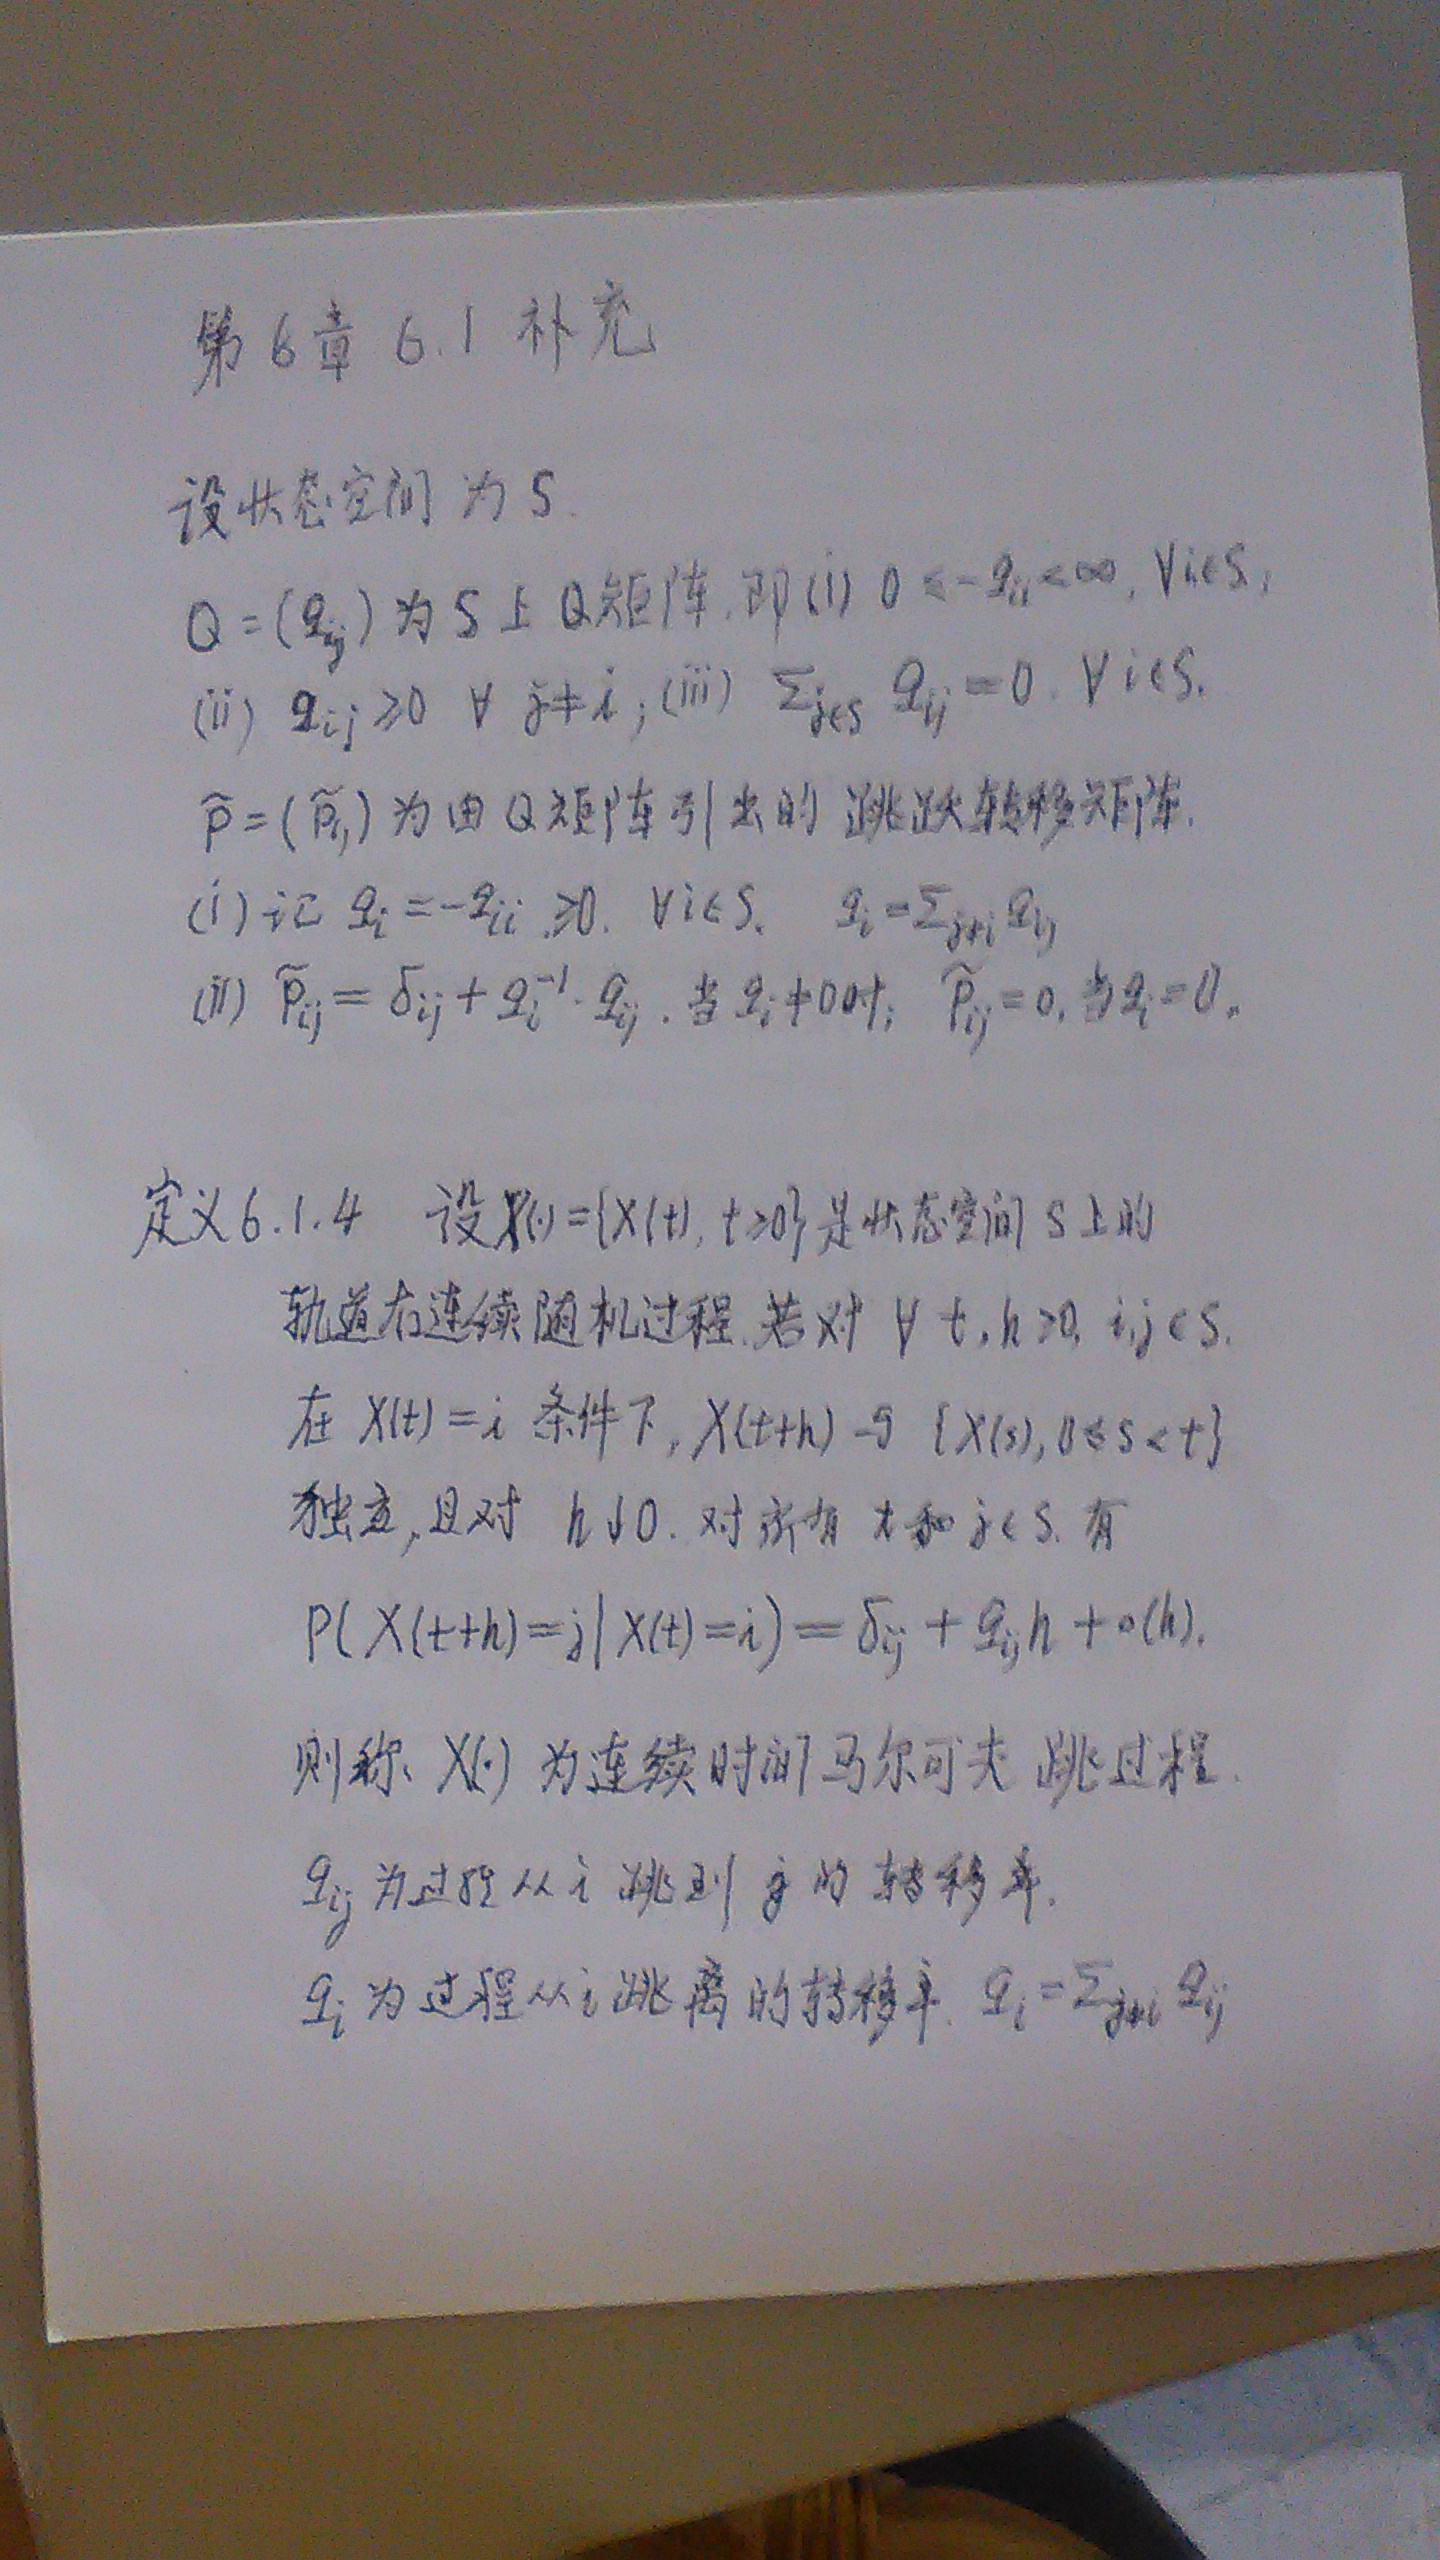 第6章 6.1 补充
设状态空间为 S.
Q=(qij) 为 S 上 Q矩阵. 即(i) 0≤-qii<∞, ∀i∈S;
(ii) qij≥0 ∀ j≠i; (iii) Σj∈S qij=0. ∀i∈S.
p̃=(p̃ij) 为由Q矩阵引出的 跳跃转移矩阵.
(i) 记 qi=-qii≥0. ∀i∈S. qi=Σj≠i qij
(ii) p̃ij=δij+qi⁻¹·qij. 当 qi≠0时; p̃ij=0, 当qi=0.
定义6.1.4 设X(·)={X(t), t≥0}是状态空间 S上的
轨道右连续随机过程. 若对 ∀ t, h>0, i,j∈S.
在 X(t)=i 条件下, X(t+h) 与 {X(s), 0≤s<t}
独立, 且对 h↓0. 对所有 t和 j∈S. 有
P(X(t+h)=j|X(t)=i)=δij+qijh+o(h).
则称 X(·) 为连续时间马尔可夫 跳过程.
qij 为过程从 i 跳到 j 的 转移率.
qi 为过程从 i 跳离的转移率. qi=Σj≠i qij